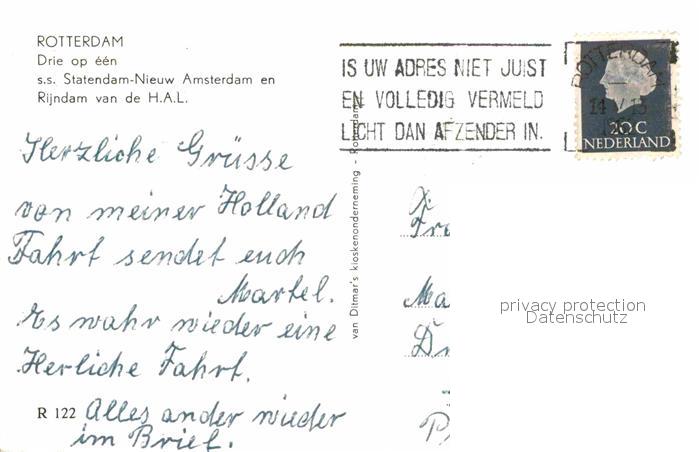 ROTTERDAM
Drie op één
s.s. Statendam-Nieuw Amsterdam en
Rijndam van de H.A.L.
IS UW ADRES NIET JUIST
EN VOLLEDIG VERMELD
LICHT DAN AFZENDER IN.
ROTTERDAM
20 C
NEDERLAND
Herzliche Grüsse
von meiner Holland
Fahrt sendet euch
Martel.
Es wahr wieder eine
Herliche Fahrt.
R 122
Alles ander wieder
im Brief.
van Ditmar's kioskenonderneming - Rotterdam
Fr
Ma
D
privacy protection
Datenschutz